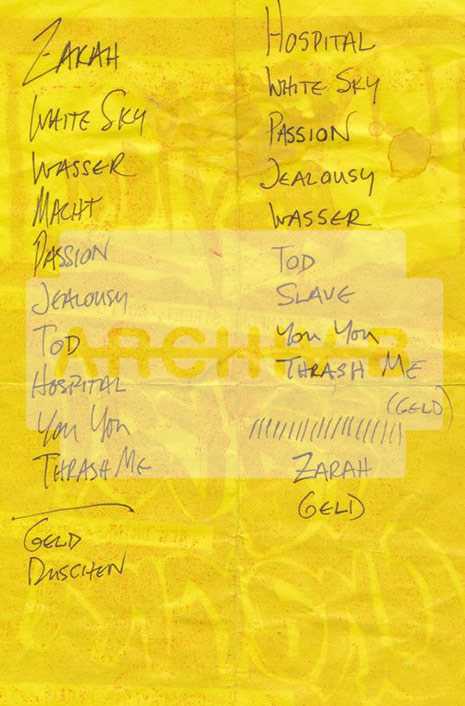 ZARAH
WHITE SKY
WASSER
MACHT
PASSION
JEALOUSY
TOD
HOSPITAL
YOU YOU
THRASH ME
GELD
DUSCHEN
HOSPITAL
WHITE SKY
PASSION
JEALOUSY
WASSER
TOD
SLAVE
YOU YOU
THRASH ME
(GELD)
ZARAH
GELD